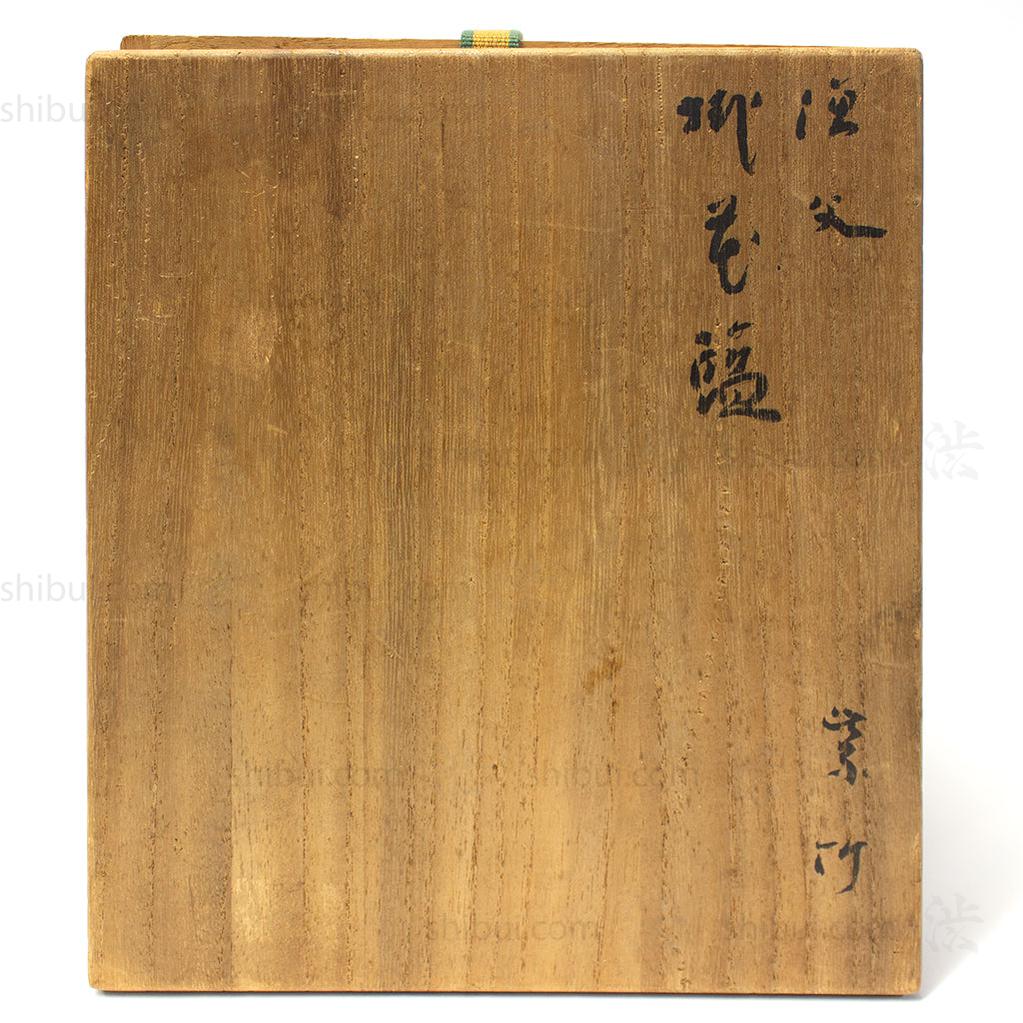 漁父
掛花籃
紫竹
shibui.com
shibui.com
shibui.com
shibui.com
shibui.com
shibui.com
渋
渋